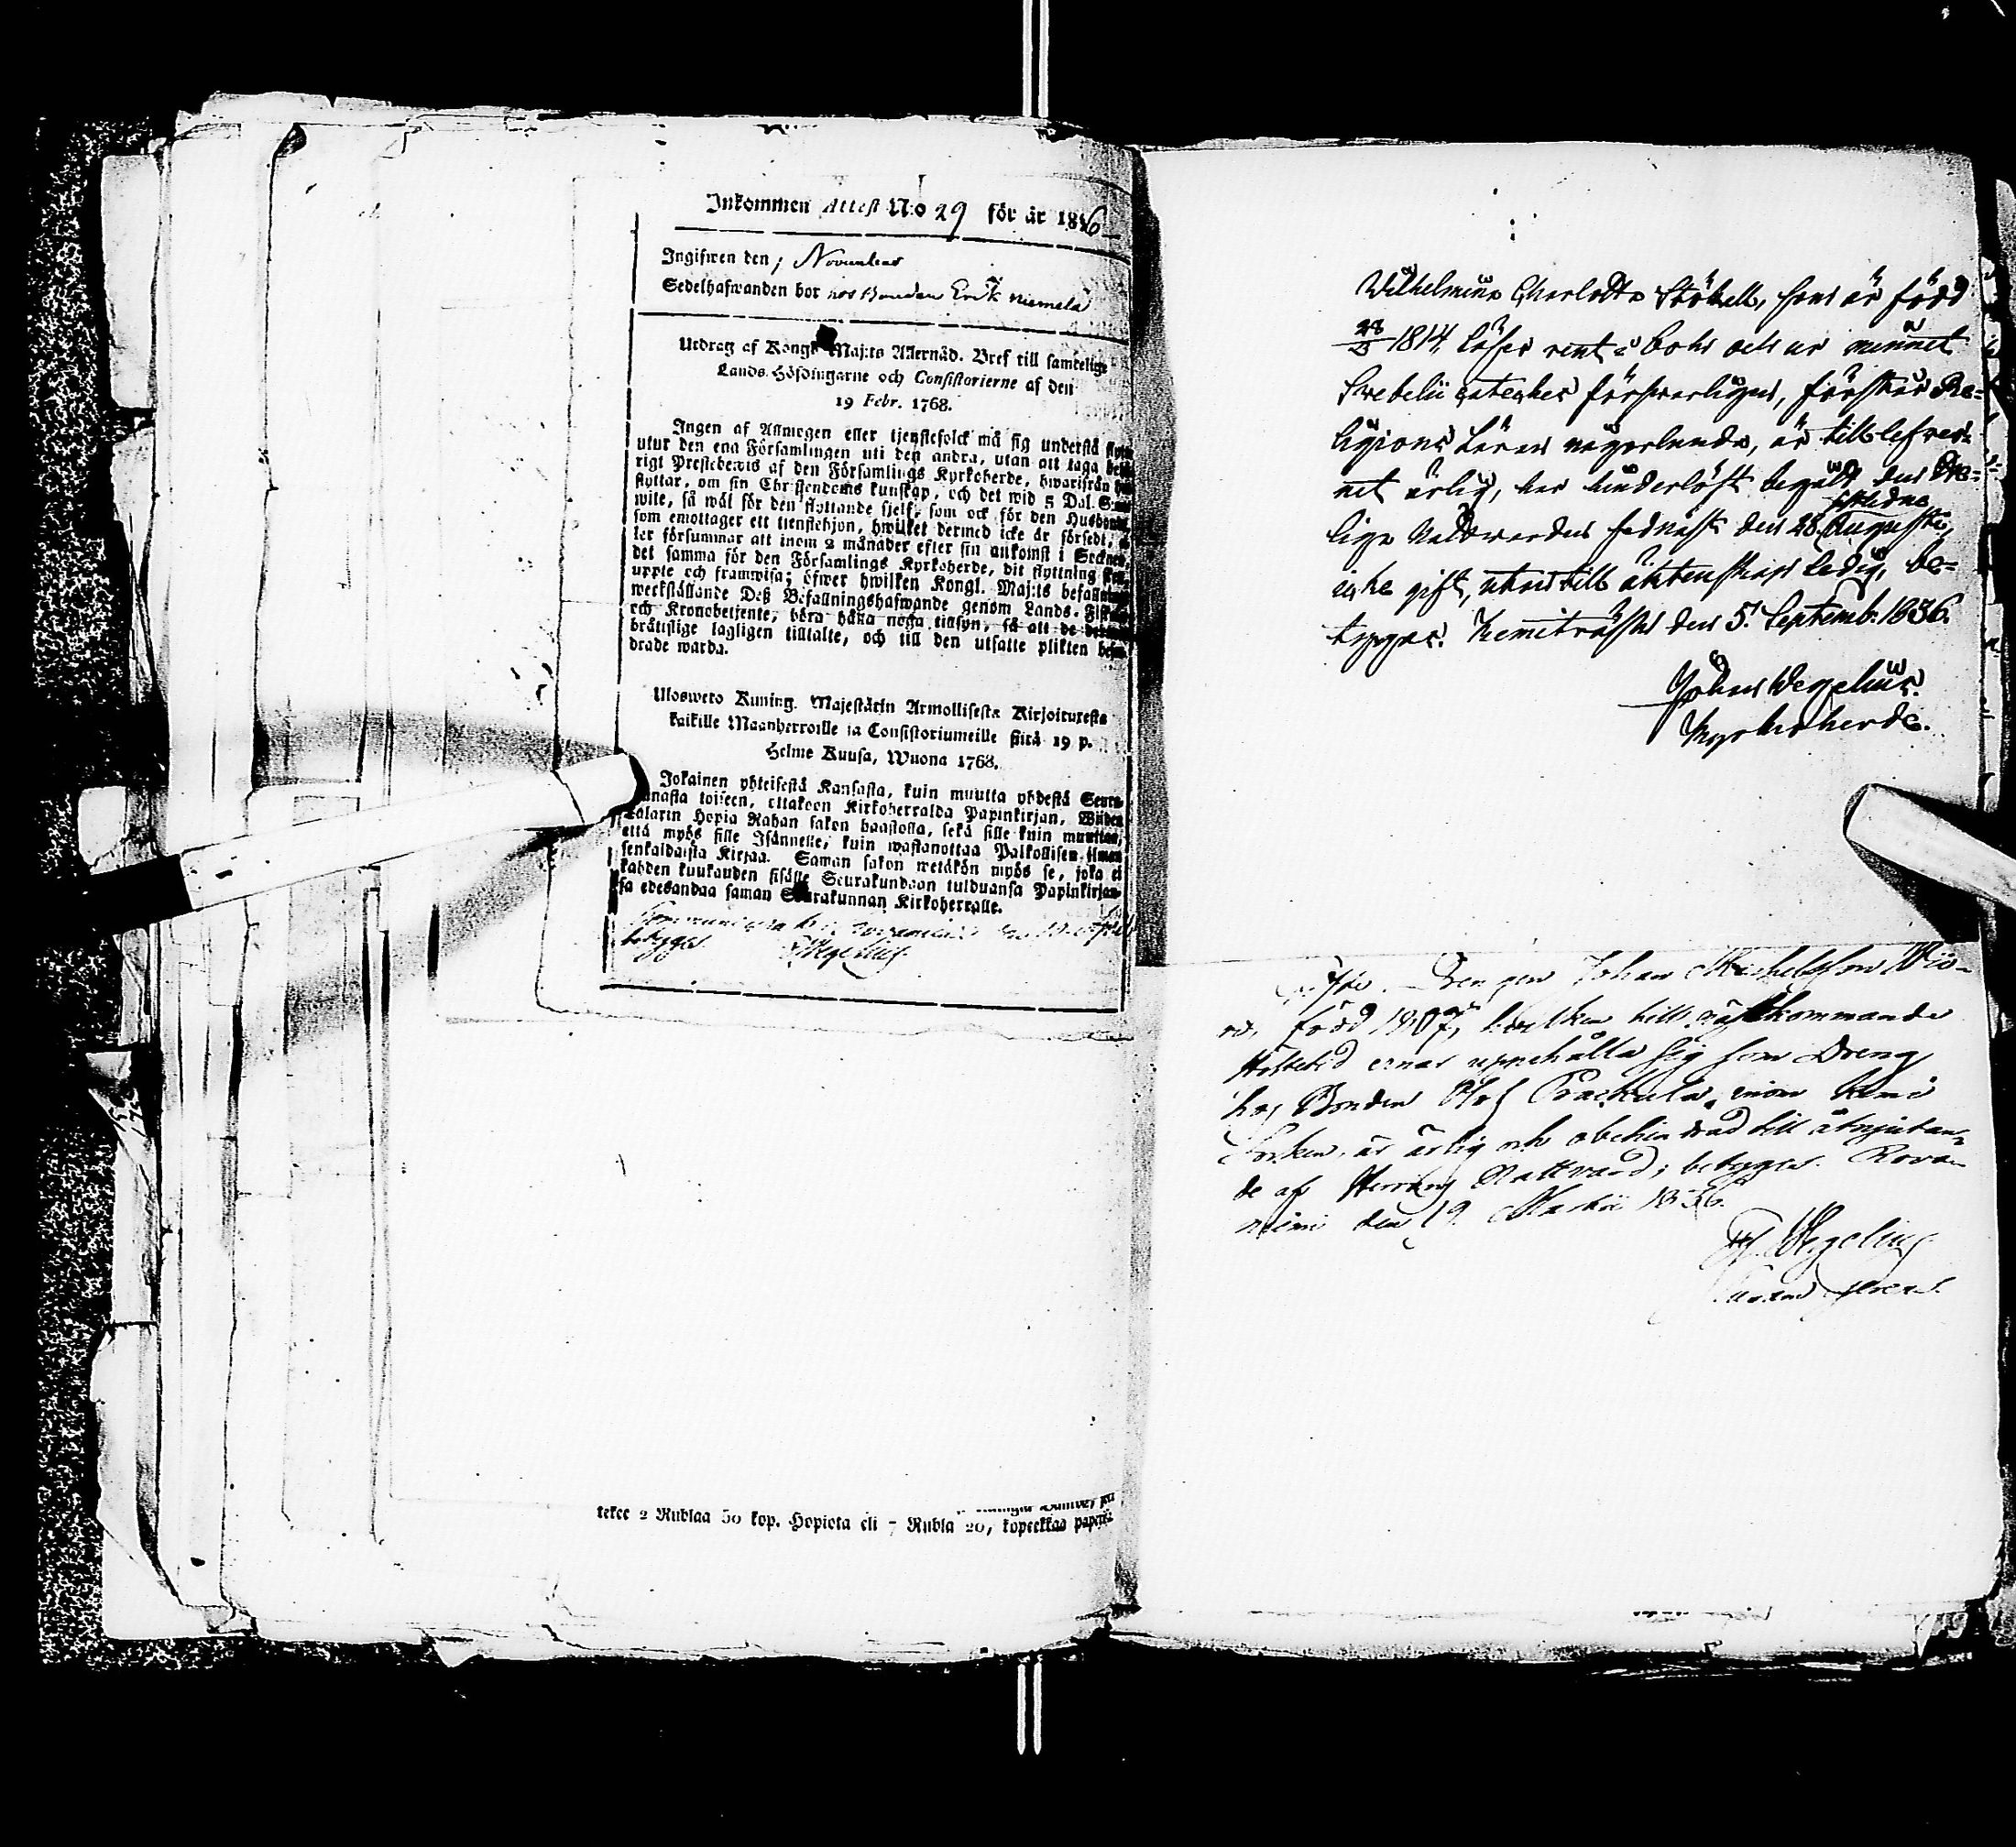 Inkommen Attest N:o 29 för år 1836
Ingifwen den 1 November
Sedelhafwanden bor hos Bonden Erik Niemelä
Utdrag af Kongl. Maj:ts Allernåd. Bref till samtelige
Lands-Höfdingarne och Consistorierne af den
19 Febr. 1768.
Ingen af Allmogen eller tjenstefolck må sig understå flytta
utur den ena Församlingen uti den andra, utan att taga behö-
rigt Prestebewis af den Församlings Kyrkoherde, hwarifrån han
flyttar, om sin Christendoms kunskap, och det wid 5 Dal. S:mt
wite, så wäl för den flyttande sjelf, som ock för den Husbonde
som emottager ett tienstehjon, hwilket dermed icke är försedt,
ler försummar att inom 2 månader efter sin ankomst i Socknen
det samma för den Församlings Kyrkoherde, dit flyttning sker
uppte och framwisa; öfwer hwilken Kongl. Maj:ts befallning
werkställande Deß Befallningshafwande genom Lands-Fiskaler
och Kronobetjente, böra hålla noga tillsyn, så att de
brätslige lagligen tilltalte, och till den utsatte plikten
drade warda.
Ulosweto Kuning. Majestätin Armollisesta Kirjoituxesta
kaikille Maanherroille ja Consistoriumeille siitä 19 p.
Helme Kuusa, Wuona 1768.
Jokainen yhteisestä Kansasta, kuin muutta yhdestä Seura-
kunnasta toiseen, ottakoon Kirkoherralda Papinkirjan, Wiiden
Talarin Hopia Rahan sakon haastolla, sekä sille kuin muuttaa,
että myös sille Isännelle, kuin wastanottaa Palkollisen ilman
senkaldaista Kirjaa. Saman sakon wetäkön myös se, joka ei
kahden kuukauden sisälle Seurakundaan tulduansa Papinkirjan-
sa edesandaa saman Seurakunnan Kirkoherralle.
betygger Wegelius
tekee 2 Rublaa 50 kop. Hopiota eli 7 Rubla 20, kopeekkaa paperisa
Wilhelmina Charlotta Ståhell, som är född
28/3 1814, läser rent i bok och ur minnet
Svebelii cateches försvarligen, förstår Re-
ligions Läran någorlunda, är till lefver-
net ärlig, har hinderlöst begått den He-
liga Nattwarden sednast den 28 sistledne Augusti,
icke gift, utan till äktenskap ledig, be-
tygas. Kemiträsk den 5 Septemb. 1836.
Johan Wegelius.
Kyrkoherde.
Drengen Johan Michelsson Wio-
född 1807, hvilken till nästkommande
Hösttid ernar uppehålla sig som Dreng
hos Bonden Olof Paakkola, inom Kemi
Socken, är ärlig och obehindrad till åtnjutan-
de af Herrans Nattvard; betygar. Rova-
niemi den 19 Martii 1836.
Wegelius